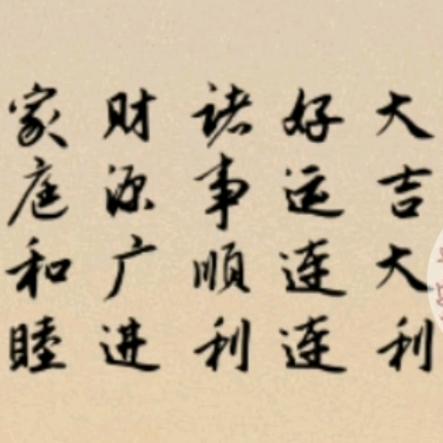 大吉大利
好运连连
诸事顺利
财源广进
家庭和睦